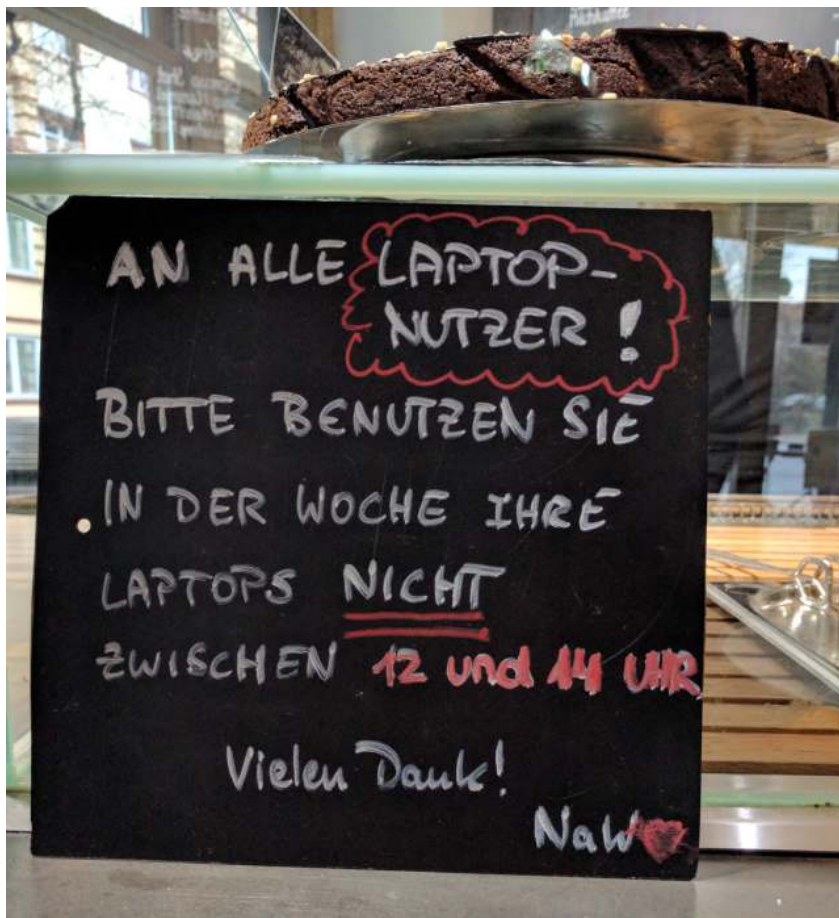 Milchkaffee
AN ALLE LAPTOP-
NUTZER!
BITTE BENUTZEN SIE
IN DER WOCHE IHRE
LAPTOPS NICHT
ZWISCHEN 12 und 14 UHR
Vielen Dank!
NaW